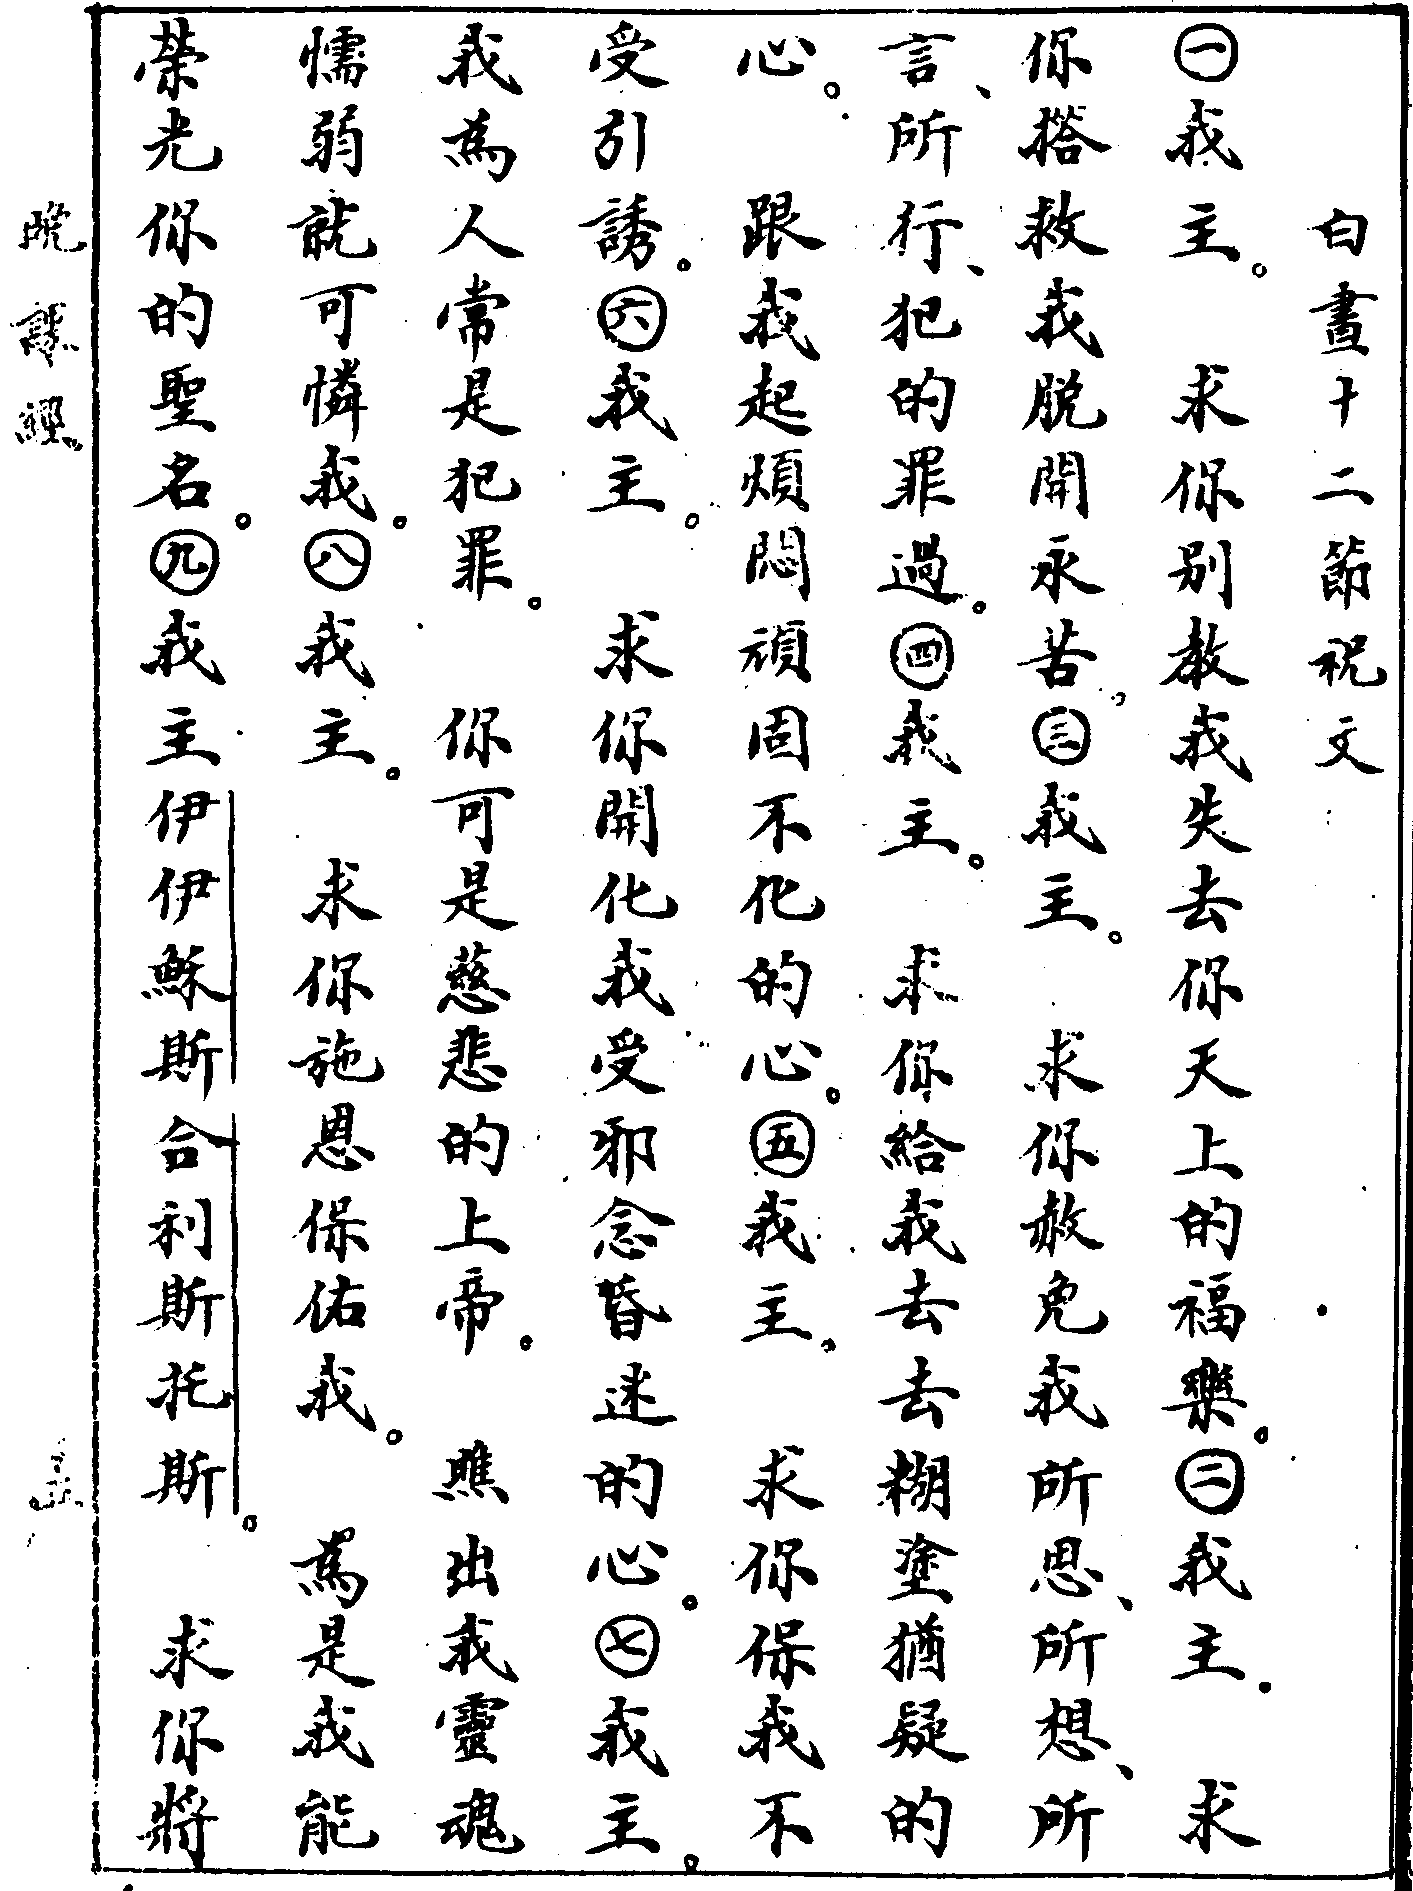 白晝十二節祝文
㊀我主。 求你别教我失去你天上的福樂。㊁我主。 求
你搭救我脱開永苦。㊂我主。 求你赦免我所思、所想、所
言、所行、犯的罪過。㊃我主。 求你給我去去糊塗猶疑的
心。 跟我起煩悶頑固不化的心。㊄我主。 求你保我不
受引誘。㊅我主。 求你開化我受邪念昏迷的心。㊆我主。
我為人常是犯罪。 你可是慈悲的上帝。 瞧出我靈魂
懦弱就可憐我。㊇我主。 求你施恩保佑我。 為是我能
荣光你的聖名。㊈我主伊伊穌斯合利斯托斯。 求你將
晚課經
五